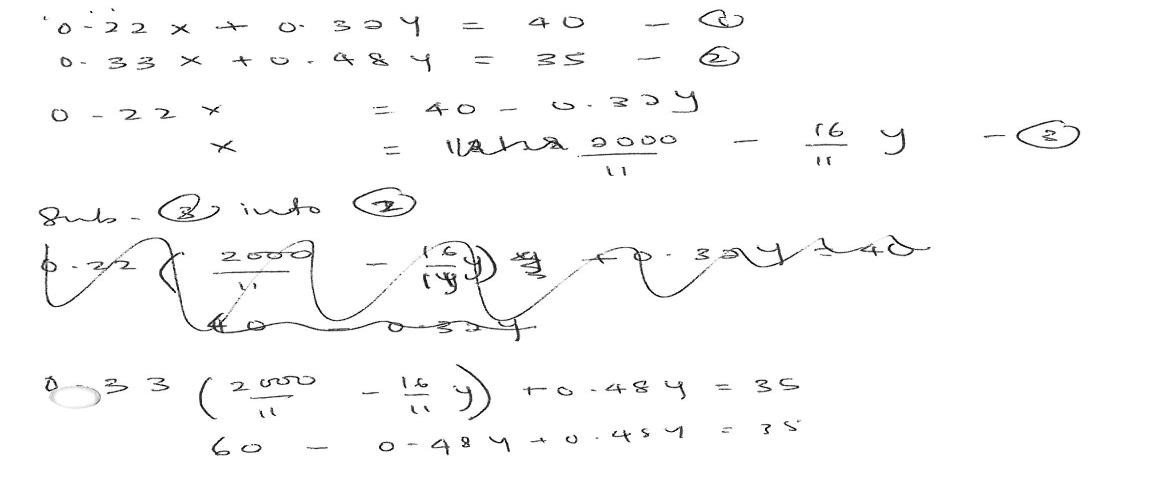 0.22x + 0.32y = 40 - ①
0.33x + 0.48y = 35 - ②
0.22x = 40 - 0.32y
x = 2000/11 - 16/11 y - ③
Sub. ③ into ②
0.22 ( 2000/11 - 16/11 y ) + 0.32y = 40
40 - 0.32y
0.33 ( 2000/11 - 16/11 y ) + 0.48y = 35
60 - 0.48y + 0.48y = 35